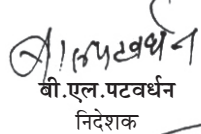 बी.एल.पटवर्धन
बी.एल.पटवर्धन
निदेशक